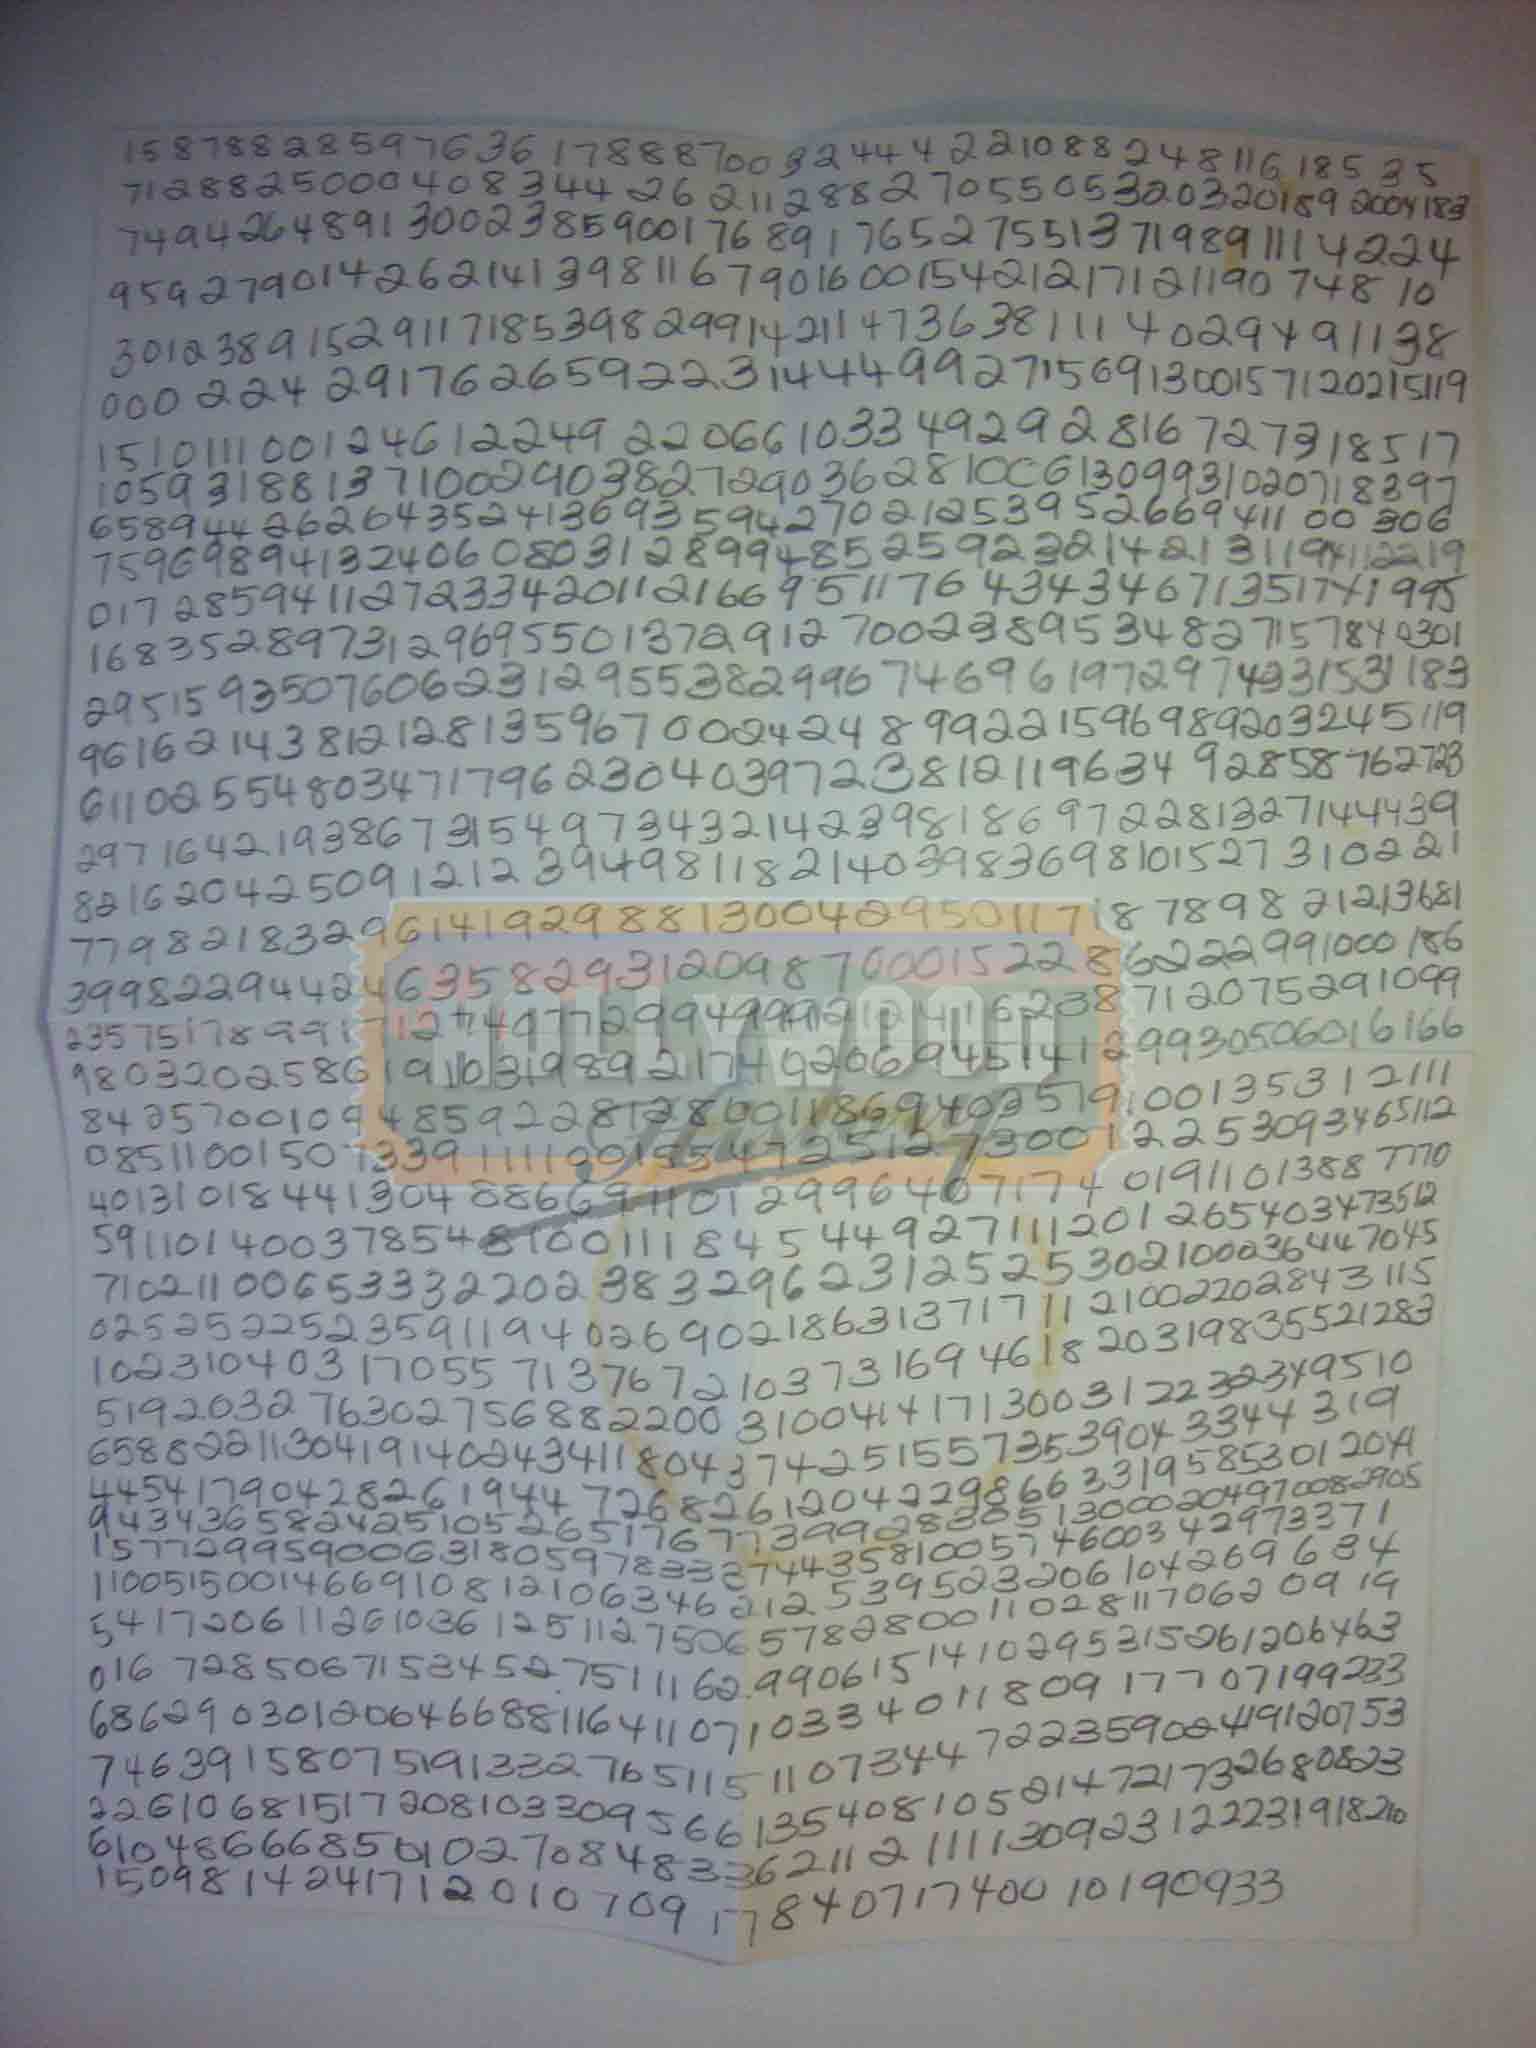 1587882859763617888700324442210882481161853 5
71288250004083442621128827055053203201892004183
7494264891300238590017689176527551371989111 4224
95927901426214139811679016001542121712119074810
3012389152911718539829914211473638111402949113 8
000224291762659223144499271569130015712021511 9
15101110012461224922066103349292816727318517
10593188137100290382729036281006130993102071839 7
6589442626435241369359427021253952669411003 06
7596989413240608031289948525923214213119411221 9
01728594112723342011216695117643434671351741995
16835289731296955013729127002389534827157840301
29515935076062312955382996746961972974331531183
9616214381212813596700024248992215969892032451 19
6110255480347179623040397238121196349285876272 3
297164219386731549734321423981869722813271444 39
8216204250912123949811821403983698101527310221
779821832961419298813004295011718789821213681
399822944246358293120987000152286222991000186
2357517899171274077299499921241623871207529109 9
9803202586191103198921740206945141299305060161 66
843570010948592281280011869403579100135312111
0851100150733911110015547251273001225309346511 2
4013101844130488669110129964071740191101388777 0
59110140037854810011184544927111201265403473512
710211006533322023832962312525302100036447045
0252522523591194026902186313717112100220284311 5
10231040317055713767210373169461820319835521283
5192032763027568822003100414171300312232349510
6588221130419140243411804374251557353904334431 9
44541790428261944726826120422986633195853012041
943436582425105265176773999283051300020497008290 5
157729959006318059783337443581005746003429733 71
1100515001466910812106346212539523206104269634
541720611261036125112750657828001102811706209 19
016728506715345275111629906151410295315261206463
686290301200646688116411071033401180917707199233
746391580751913327651151107344722359024191207 53
226106815172081033095661354081052147217326808 23
61048666850102708483362112111130923122231918210
15098142417120107091784071740010190933